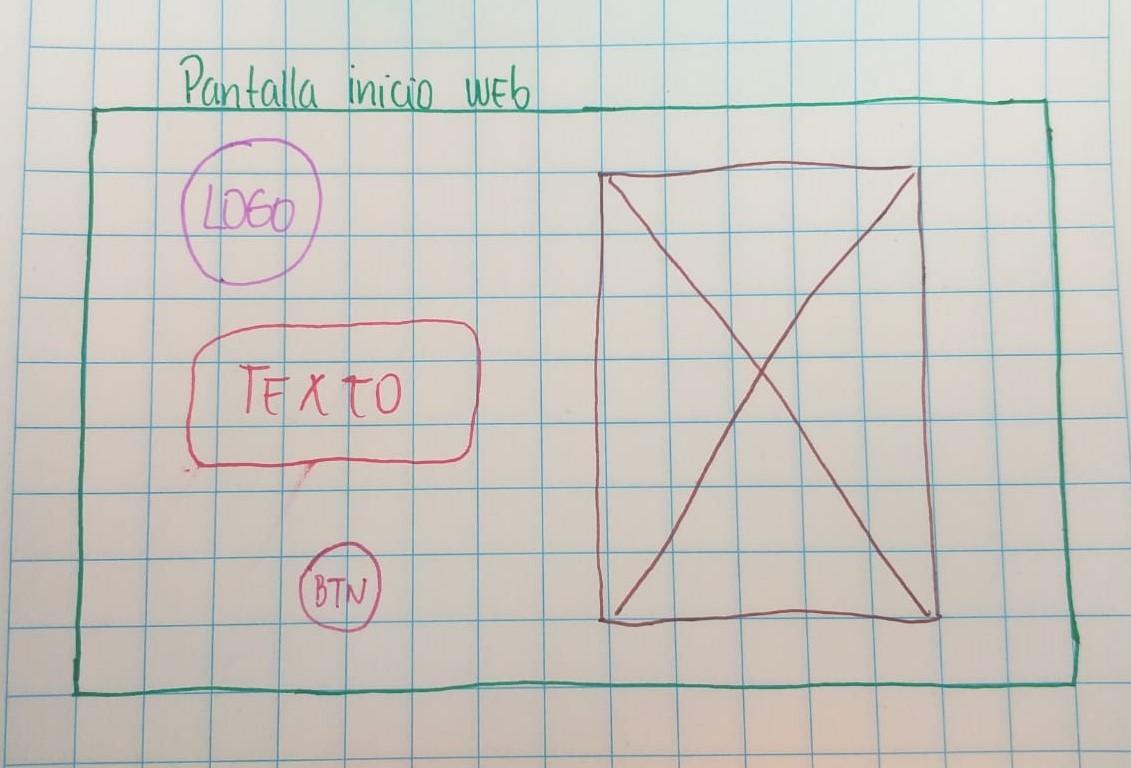 Pantalla inicio WEb
LOGO
TEXTO
BTN